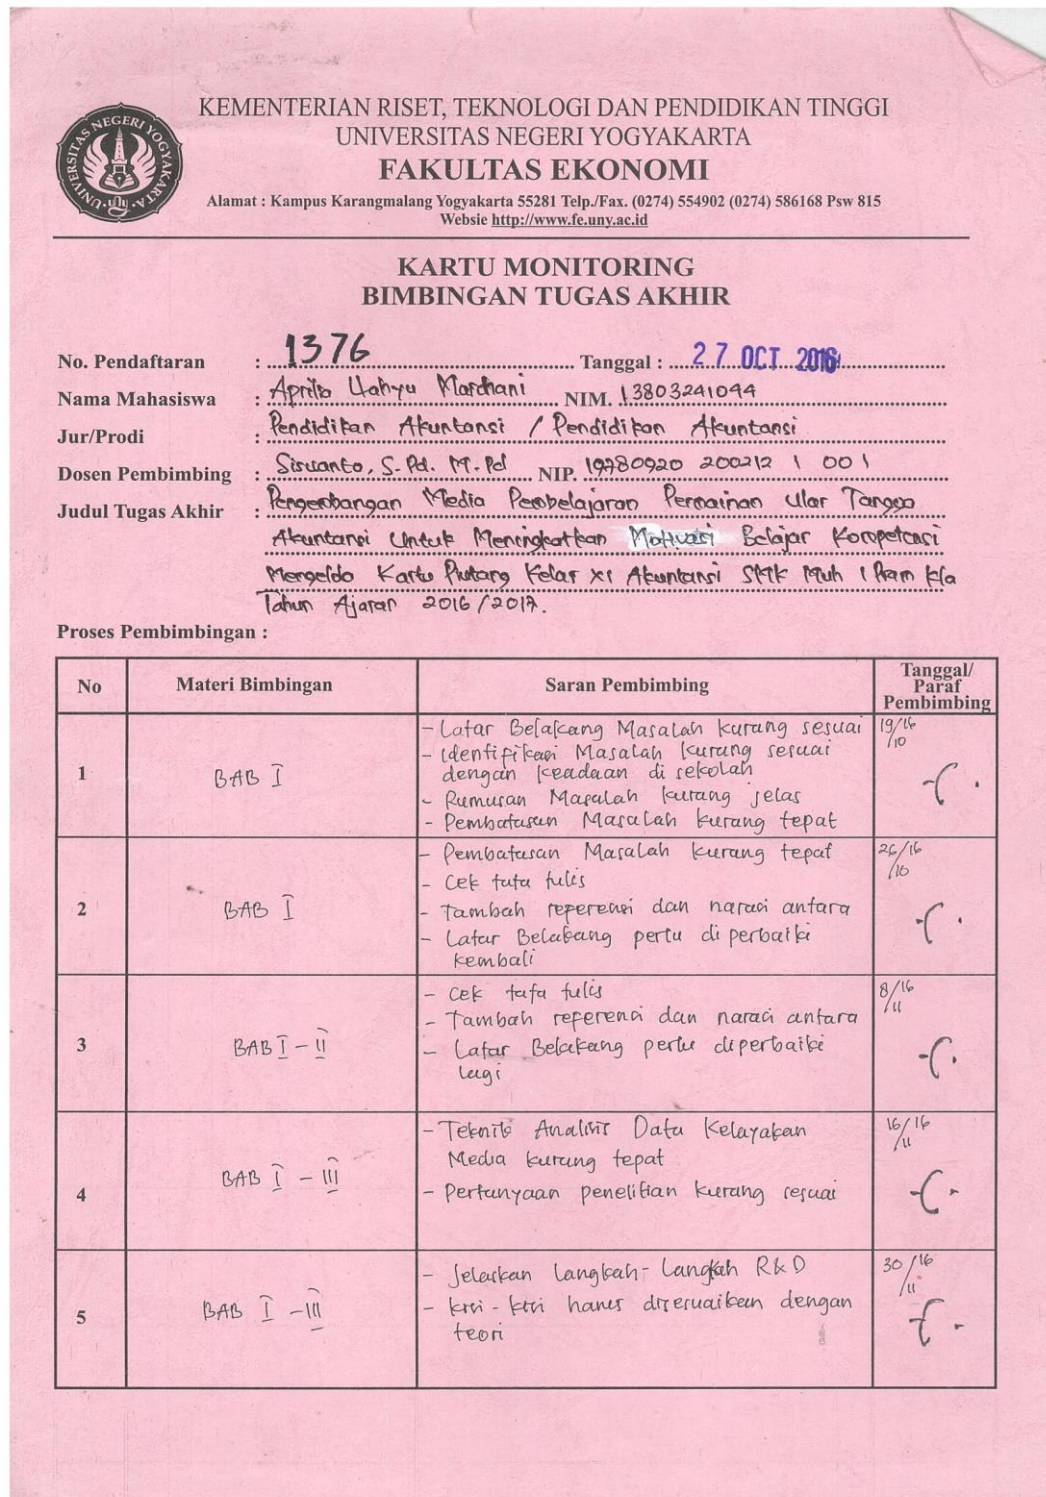 KEMENTERIAN RISET, TEKNOLOGI DAN PENDIDIKAN TINGGI
UNIVERSITAS NEGERI YOGYAKARTA
FAKULTAS EKONOMI
Alamat : Kampus Karangmalang Yogyakarta 55281 Telp./Fax. (0274) 554902 (0274) 586168 Psw 815
Websie http://www.fe.uny.ac.id
UNIVERSITAS NEGERI YOGYAKARTA
KARTU MONITORING
BIMBINGAN TUGAS AKHIR
No. Pendaftaran : 1376 Tanggal : 27 OCT 2016
Nama Mahasiswa : Aprilia Wahyu Mardhani NIM. 13803241044
Jur/Prodi : Pendidikan Akuntansi / Pendidikan Akuntansi
Dosen Pembimbing : Siswanto, S.Pd. M.Pd NIP. 19780920 200212 1 001
Judul Tugas Akhir : Pengembangan Media Pembelajaran Permainan Ular Tangga
Akuntansi Untuk Meningkatkan Motivasi Belajar Kompetensi
Mengelola Kartu Piutang Kelas XI Akuntansi SMK Muh 1
Tahun Ajaran 2016/2017.
Proses Pembimbingan :
No Materi Bimbingan Saran Pembimbing Tanggal/
Paraf
Pembimbing
1 BAB I
- Latar Belakang Masalah kurang sesuai 19/10/16
- Identifikasi Masalah kurang sesuai
dengan keadaan di sekolah
- Rumusan Masalah kurang jelas
- Pembatasan Masalah kurang tepat
2 BAB I
- Pembatasan Masalah kurang tepat 26/10/16
- Cek tata tulis
- Tambah referensi dan narasi antara
- Latar Belakang perlu di perbaiki
kembali
3 BAB I - II
- Cek tata tulis 8/11/16
- Tambah referensi dan narasi antara
- Latar Belakang perlu diperbaiki
lagi
4 BAB I - III
- Teknik Analisis Data Kelayakan 16/11/16
Media kurang tepat
- Pertanyaan penelitian kurang sesuai
5 BAB I - III
- Jelaskan Langkah-Langkah R&D 30/11/16
- kisi-kisi harus disesuaikan dengan
teori